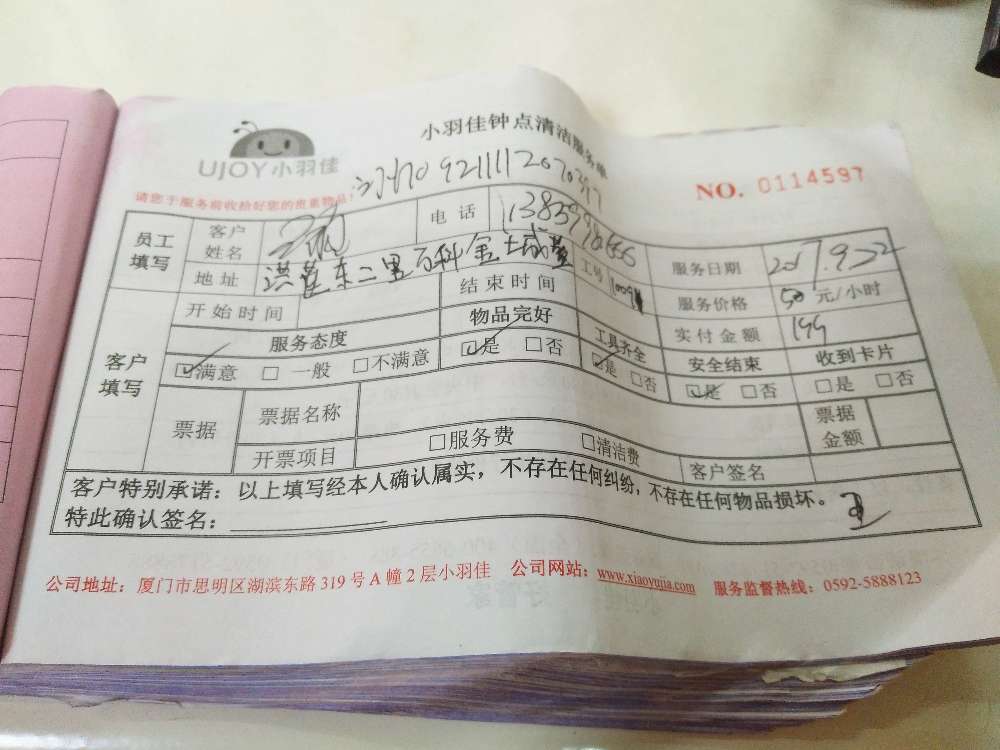 UJOY小羽佳
小羽佳钟点清洁服务单
请您于服务前收拾好您的贵重物品!
NO. 0114597
员工填写
客户姓名
电话
服务日期 2017.9.22
地址
工号
服务价格 50 元/小时
客户填写
开始时间
结束时间
实付金额 199
服务态度
物品完好
工具齐全
安全结束
收到卡片
☑满意 □ 一般 □不满意
☑是 □否
☑是 □否
☑是 □否
□是 □否
票据
票据名称
票据金额
开票项目
□服务费 □清洁费
客户签名
客户特别承诺：以上填写经本人确认属实，不存在任何纠纷，不存在任何物品损坏。
特此确认签名：
公司地址：厦门市思明区湖滨东路 319 号 A 幢 2 层小羽佳 公司网站：www.xiaoyujia.com 服务监督热线：0592-5888123